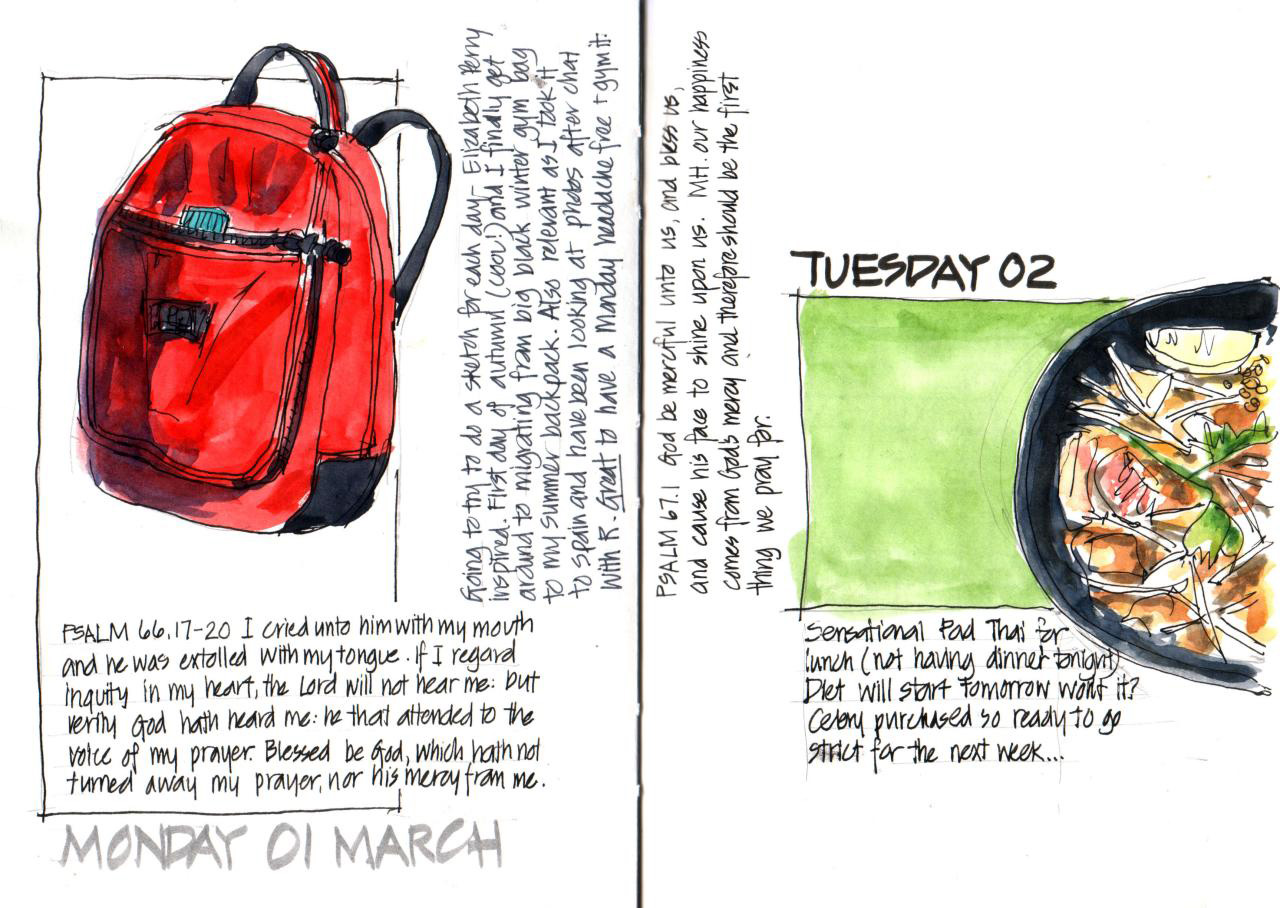 Going to try to do a sketch for each day - Elizabeth Perry
inspired. First day of autumn (cool!) and I finally get
around to migrating from big black winter gym bag
to my summer backpack. Also relevant as I took it
to Spain and have been looking at photos after chat
with R. Great to have a Monday headache free + gym it.
PSALM 66.17-20 I cried unto him with my mouth
and he was extolled with my tongue. If I regard
iniquity in my heart, the Lord will not hear me: but
verily God hath heard me: he that attended to the
voice of my prayer. Blessed be God, which hath not
turned away my prayer, nor his mercy from me.
MONDAY 01 MARCH
PSALM 67.1 God be merciful unto us, and bless us,
and cause his face to shine upon us. MH. our happiness
comes from God's mercy and therefore should be the first
thing we pray for.
TUESDAY 02
Sensational Pad Thai for
lunch (not having dinner tonight)
Diet will start tomorrow won't it?
Celery purchased so ready to go
strict for the next week...